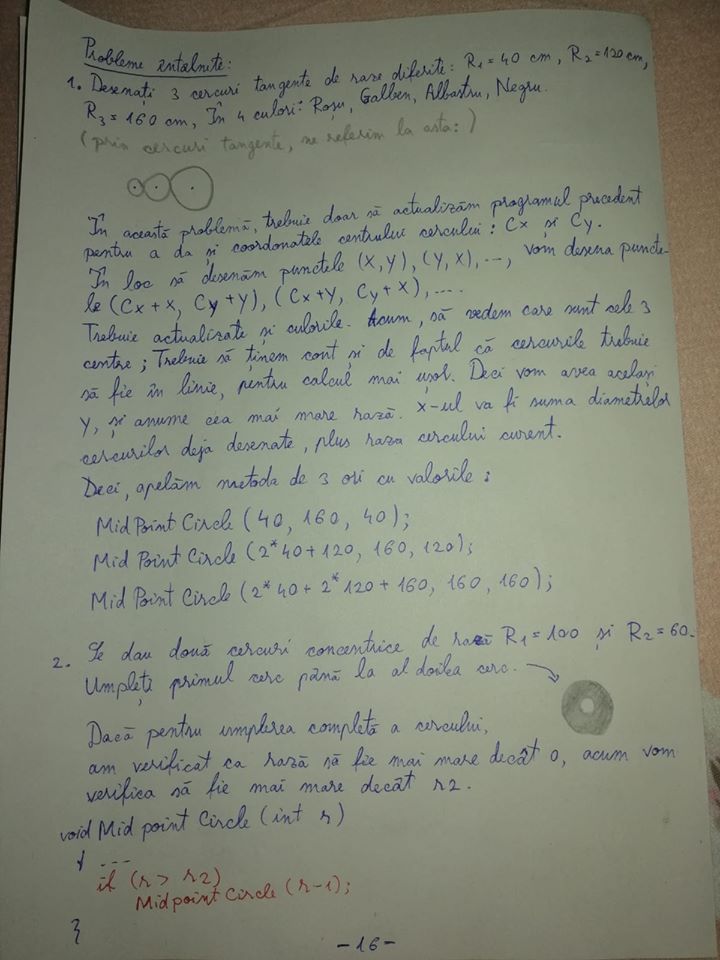 Probleme întâlnite:
1. Desenați 3 cercuri tangente de raze diferite: R1=40 cm, R2=120cm,
R3=160 cm, În 4 culori: Roșu, Galben, Albastru, Negru.
(prin cercuri tangente, ne referim la asta:)
În această problemă, trebuie doar să actualizăm programul precedent
pentru a da și coordonatele centrului cercului: Cx și Cy.
În loc să desenăm punctele (X,Y), (Y,X), ..., vom desena puncte-
le (Cx+x, Cy+y), (Cx+y, Cy+x), ....
Trebuie actualizate și culorile. Acum, să vedem care sunt cele 3
centre; Trebuie să ținem cont și de faptul că cercurile trebuie
să fie în linie, pentru calcul mai ușor. Deci vom avea același
Y, și anume cea mai mare rază. X-ul va fi suma diametrelor
cercurilor deja desenate, plus raza cercului curent.
Deci, apelăm metoda de 3 ori cu valorile:
MidPoint Circle (40, 160, 40);
Mid Point Circle (2*40+120, 160, 120);
Mid Point Circle (2*40+2*120+160, 160, 160);
2. Se dau două cercuri concentrice de rază R1=100 și R2=60.
Umpleți primul cerc până la al doilea cerc.
Dacă pentru umplerea completă a cercului,
am verificat ca rază să fie mai mare decât 0, acum vom
verifica să fie mai mare decât r2.
void Mid point Circle (int r)
{ ...
if (r > r2)
Midpoint Circle (r-1);
}
-16-